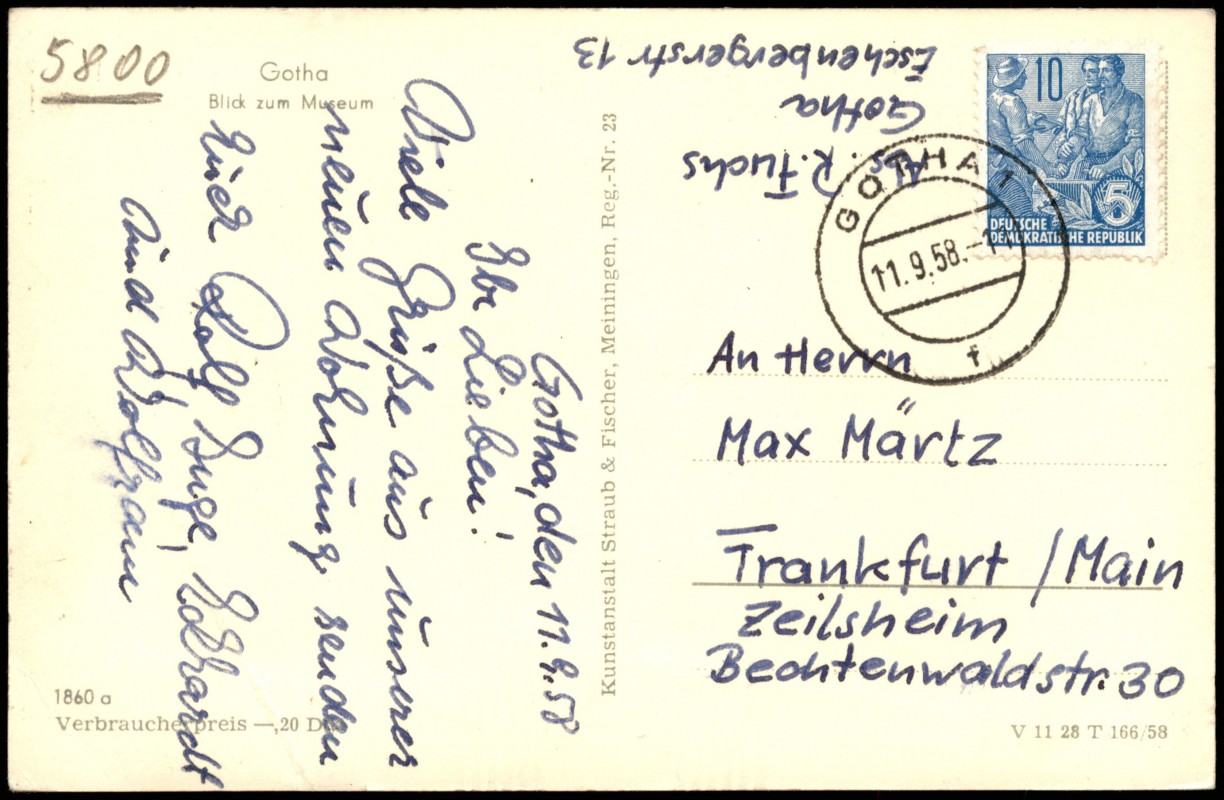 5800
Gotha
Blick zum Museum
Gotha, den 11.9.58
Ihr Lieben!
Viele Grüße aus unserer
neuen Wohnung senden
Euch Rolf, Inge, Eckhardt
und Wolfram
1860 a
Verbraucherpreis —,20 D
Kunstanstalt Straub & Fischer, Meiningen, Reg.-Nr. 23
Abs. R. Fuchs
Gotha
Eschenbergerstr 13
10
5
DEUTSCHE
DEMOKRATISCHE REPUBLIK
GOTHA 1
11.9.58.-11
f
An Herrn
Max Märtz
Frankfurt /Main
Zeilsheim
Bechtenwaldstr. 30
V 11 28 T 166/58